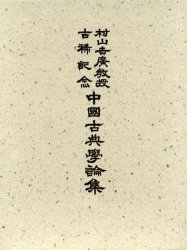 村山吉廣教授
古稀記念
中國古典學論集